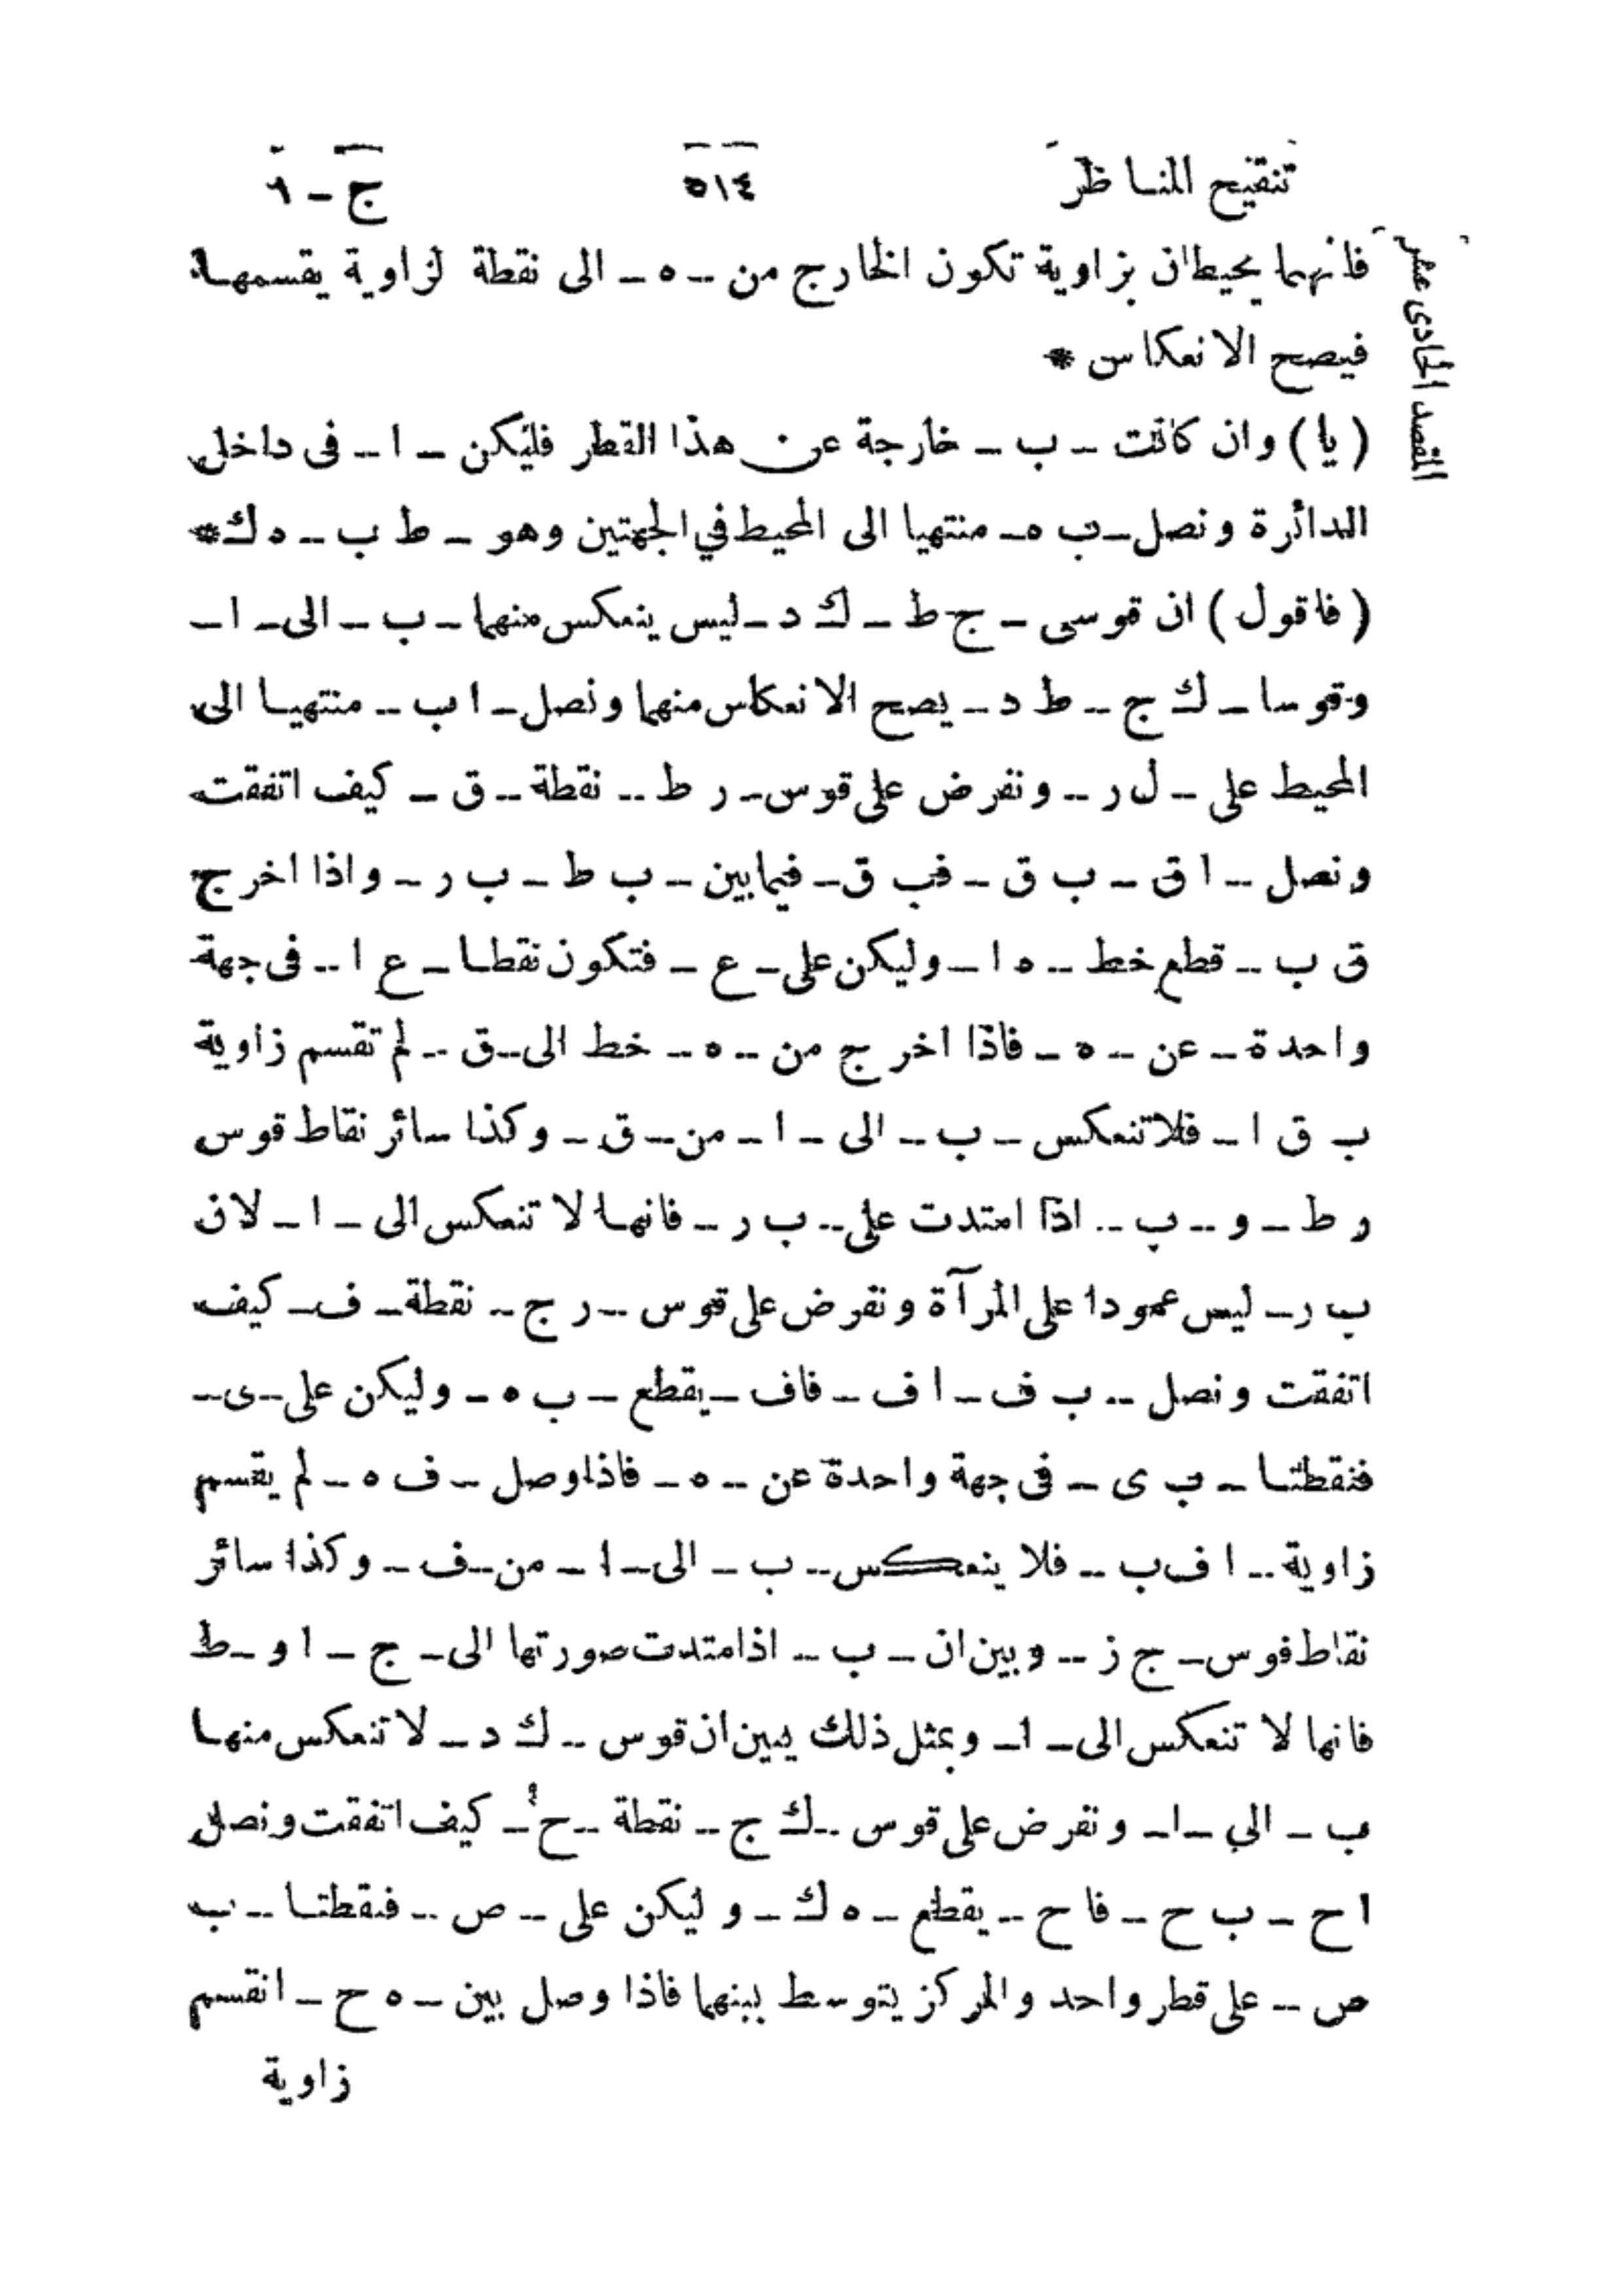 تنقيح المناظر ٥١٤ ج - ١
المقصد الحادى عشر
فانهما يحيطان بزاوية تكون الخارج من - ه - الى نقطة لزاوية يقسمها
فيصح الانعكاس *
(يا) وان كانت - ب - خارجة عن هذا القطر فليكن - ا - فى داخل
الدائرة ونصل - ب ه - منتهيا الى المحيط في الجهتين وهو - ط ب - ه ك *
(فاقول) ان قوسى - ج ط - ك د - ليس ينعكس منهما - ب - الى - ا -
وقوسا - ك ج - ط د - يصح الانعكاس منهما ونصل - ا ب - منتهيا الى
المحيط على - ل ر - ونفرض على قوس - ر ط - نقطة - ق - كيف اتفقت
ونصل - ا ق - ب ق - فب ق - فيما بين - ب ط - ب ر - واذا اخرج
ق ب - قطع خط - ه ا - وليكن على - ع - فتكون نقطا - ع ا - فى جهة
واحدة - عن - ه - فاذا اخرج من - ه - خط الى - ق - لم تقسم زاوية
ب ق ا - فلا تنعكس - ب - الى - ا - من - ق - وكذا سائر نقاط قوس
ر ط - و - ب - اذا امتدت على - ب ر - فانها لا تنعكس الى - ا - لان
ب ر - ليس عمودا على المرآة ونفرض على قوس - ر ج - نقطة - ف - كيف
اتفقت ونصل - ب ف - ا ف - فاف - يقطع - ب ه - وليكن على - ى -
فنقطتا - ب ى - فى جهة واحدة عن - ه - فاذا وصل - ف ه - لم يقسم
زاوية - ا ف ب - فلا ينعكس - ب - الى - ا - من - ف - وكذا سائر
نقاط قوس - ج ز - وبين ان - ب - اذا متدت صورتها الى - ج - ا و - ط
فانها لا تنعكس الى - ا - وبمثل ذلك يبين ان قوس - ك د - لا تنعكس منها
ب - الي - ا - ونفرض على قوس - ك ج - نقطة - ح - كيف اتفقت ونصل
ا ح - ب ح - فا ح - يقطع - ه ك - وليكن على - ص - فنقطتا - ب
ص - على قطر واحد والمركز يتوسط بينهما فاذا وصل بين - ه ح - انقسم
زاوية